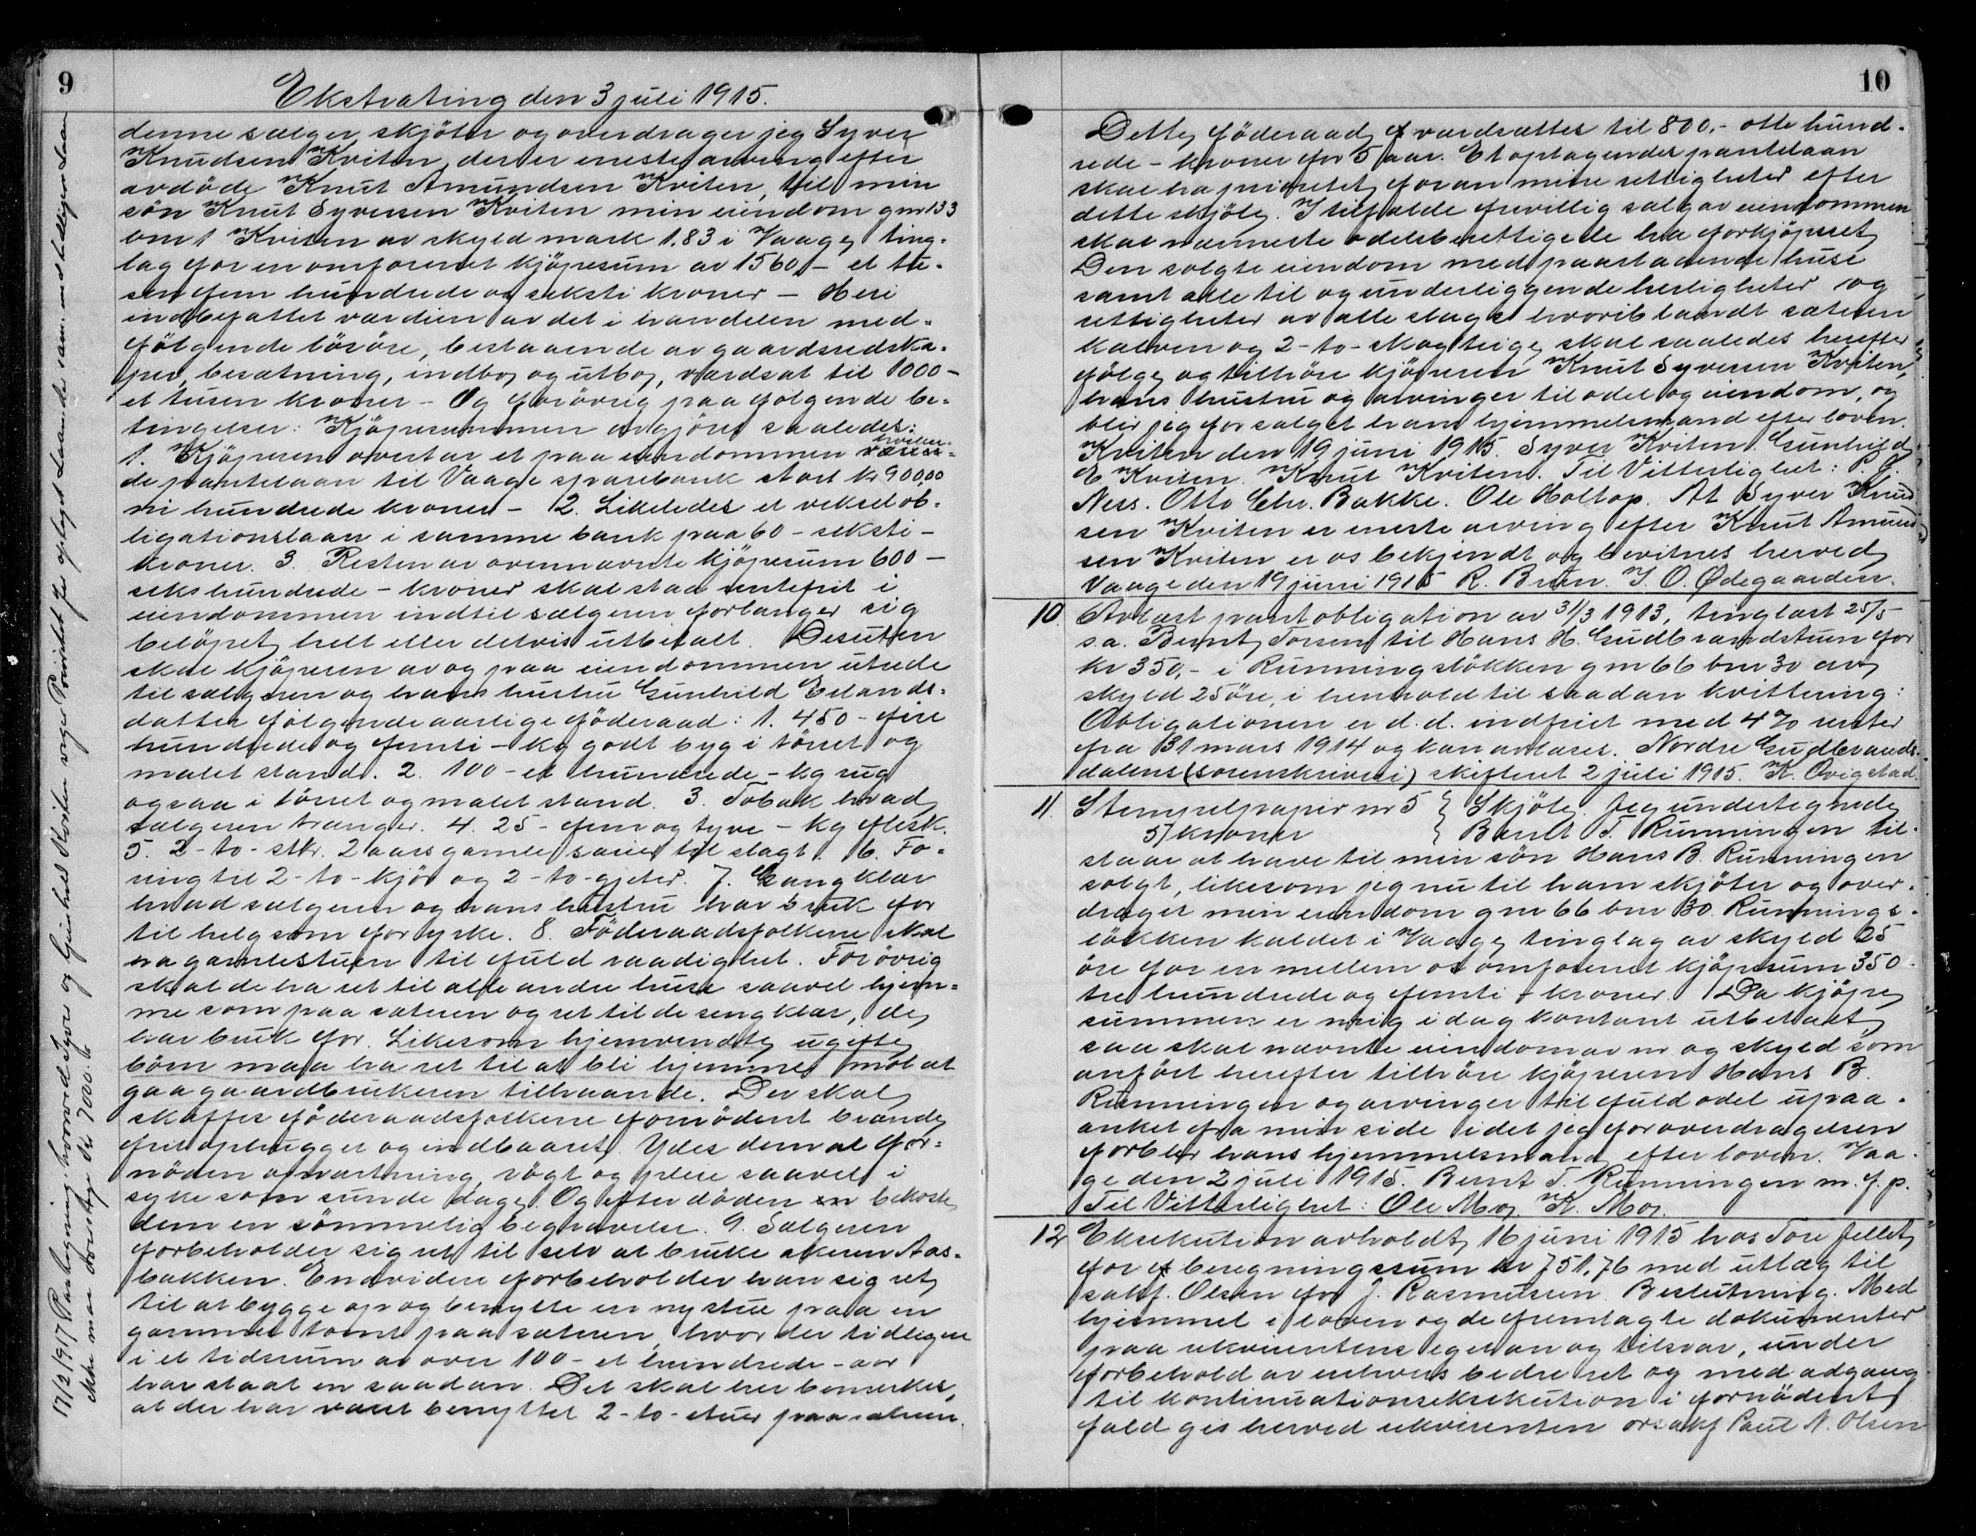 9
Ekstrating den 3 juli 1915.
denne sælger, skjöter og overdrager jeg Syver
Knudsen Kviten, der er eneste arving efter
avdöde Knut Amundsen Kviten, til min
sön Knut Syversen Kviten min eiendom gnr 133
bnr 1 Kviten av skyld mark 1.83 i Vaage ting-
lag for en omforenet kjöpesum av 1560,- et tu-
sen fem hundrede og seksti kroner - Heri
indbefattet værdien av det i handelen med-
fölgende lösöre, bestaaende av gaardsredska-
per, besætning, indbo og utbo, værdsat til 1000-
et tusen kroner - Og forövrig paa fölgende be-
tingelser: Kjöpesummen avgjöres saaledes:
1. Kjöperen overtar et paa eiendommen hvilen-
de pantelaan til Vaage sparebank stort kr 900,00
ni hundrede kroner - 2. Likeledes et vekselob-
ligationslaan i samme bank paa 60 - seksti -
kroner. 3. Resten av ovennævnte kjöpesum 600 -
sekshundrede - kroner skal staa rentefrit i
eiendommen indtil sælgeren forlanger sig
belöpet helt eller delvis utbetalt. Desuten
skal kjöperen av og paa eiendommen utrede
til sælgeren og hans hustru Gunhild Erlands-
datter fölgende aarlige föderaad: 1. 450 - fire
hundrede og femti - kg godt byg i törret og
malet stand. 2. 100 - et hundrede - kg rug
ogsaa i törret og malet stand. 3. Tobak hvad
sælgeren trænger. 4. 25 - fem og tyve - kg flesk.
5. 2 - to - stkr. 2 aars gamle sauer til slagt. 6. Fo-
ring til 2 - to - kjör og 2 - to - gjeter. 7. Gangklær
hvad sælgeren og hans hustru har bruk for
til helg som for yrke. 8. Föderaadsfolkene skal
ha gamlestuen til fuld raadighet. Forövrig
skal de ha ret til alle andre huse saavel hjem-
me som paa sæteren og ret til de sengklær, de
har bruk for. Likesom hjemvendte ugifte
börn maa ha ret til at bli hjemme mot at
gaa gaardbrukeren tilhaande. Der skal
skaffes föderaadsfolkene fornödent brænde
frit ophugget og indbaaret. Ydes dem al for-
nöden opvartning, rögt og pleie saavel i
syke som sunde dage. Og efter döden bekoste
dem en sömmelig begravelse. 9. Sælgeren
forbeholder sig ret til selv at bruke akeren Aas-
bakken. Endvidere forbeholder han sig ret
til at bygge op og benytte en ny stue paa en
gammel tomt paa sæteren, hvor der tidligere
i et tidsrum av over 100 - et hundrede - aar
har staat en saadan. Det skal her bemerkes,
at der har været benyttet 2 - to - stuer paa sæteren.
17/2 1917 Paategning, hvorved Syver og Gunhild Kviten viger Prioritet for optaget Laan, som med tidligere Laan
ikke maa overstige Kr. 7000.
10
Dette föderaad værdsættes til 800,- otte hund-
rede - kroner for 5 aar. Et optagendes pantelaan
skal ha prioritet foran mine rettigheter efter
dette skjöte. I tilfælde frivillig salg av eiendommen
skal nærmeste odelsberettigede ha forkjöpsret.
Den solgte eiendom med paastaaende huse
samt alle til og underliggende herligheter og
rettigheter av alle slags hvoriblandt sæteren
Kalven og 2 - to - skogteige skal saaledes herefter
fölge og tilhöre kjöperen Knut Syversen Kviten,
hans hustru og arvinger til odel og eiendom, og
blir jeg for salget hans hjemmelsmand efter loven.
Kviten den 19 juni 1915. Syver Kviten. Gunhild
E. Kviten. Knut Kviten. Til Vitterlighet: P. J.
Ness. Otto Chr. Bakke. Ole Holtop. At Syver Knud
sen Kviten er eneste arving efter Knut Amund
sen Kviten er os bekjendt og bevitnes herved
Vaage den 19 juni 1915 R. Brun. I. O. Ødegaarden.
10. Avlæst pantobligation av 31/3 1913, tinglæst 25/5
s.a. Bernt Torsen til Hans H. Gudbrandstuen for
kr 350,- i Runningslökken gnr 66 bnr 30 av
skyld 25 öre, i henhold til saadan kvittering:
Obligationen er d.d. indfriet med 4% renter
fra 31 mars 1914 og kan avlæses. Nordre Gudbrands-
dalens (sorenskriveri) skifteret 2 juli 1915. K. Qvigstad.
11. Stempelpapir nr 5 } Skjöte. Jeg undertegnede
5 kroner } Berut T. Runningen til-
staar at have til min sön Hans B. Runningen
solgt, likesom jeg nu til ham skjöter og over-
drager min eiendom gnr 66 bnr 30. Runnings-
lökken kaldet i Vaage tinglag av skyld 25
öre for en mellem os omforenet kjöpesum 350 -
tre hundrede og femti - kroner. Da kjöpe
summen er mig idag kontant utbetalt,
saa skal nævnte eiendom av nr og skyld som
anfört herefter tilhöre kjöperen Hans B.
Runningen og arvinger til fuld odel upaa-
anket fra min side idet jeg for overdragelsen
forblir hans hjemmelsmand efter loven. Vaa-
ge den 2 juli 1915. Bernt T. Runningen m. f. p.
Til Vitterlighet: Ole Moe. K. Moe.
12. Eksekution avholdt 16 juni 1915 hos Tore Jellet
for beregningssum kr 751,76 med utlæg til
sakf. Olsen for J. Rasmussen. Beslutning. Med
hjemmel i loven og de fremlagte dokumenter
paa rekvirentens egetan og tilsvar, under
forbehold av enhvers bedre ret og med adgang
til kontinuationseksekution i fornödent
fald gis herved rekvirenten orsakf Paul N. Olsen